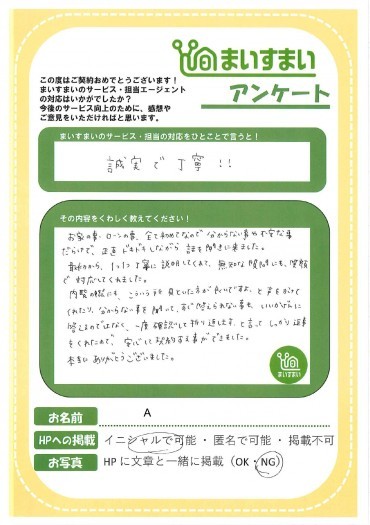 まいすまい
アンケート
この度はご契約おめでとうございます！
まいすまいのサービス・担当エージェント
の対応はいかがでしたか？
今後のサービス向上のために、感想や
ご意見をいただければと思います。
まいすまいのサービス・担当の対応をひとことで言うと！
誠実で丁寧!!
その内容をくわしく教えてください！
お家の事、ローンの事、全て初めてなので分からない事や不安な事
だらけで、正直ドキドキしながら話を聞きに来ました。
最初から、1つ1つ丁寧に説明してくれて、無知な質問にも、笑顔
で対応してくれました。
内覧の際にも、こういう所見ていた方が良いですよ、と声をかけて
くれたり、分からない事を聞いて、すぐ答えられない事も、いいかげんに
答えるのではなく、一度確認して折り返します、と言ってしっかり返事
をくれたので、安心して契約する事ができました。
本当にありがとうございました。
まいすまい
お名前 A
HPへの掲載 イニシャルで可能 ・ 匿名で可能 ・ 掲載不可
お写真 HPに文章と一緒に掲載（OK・NG）